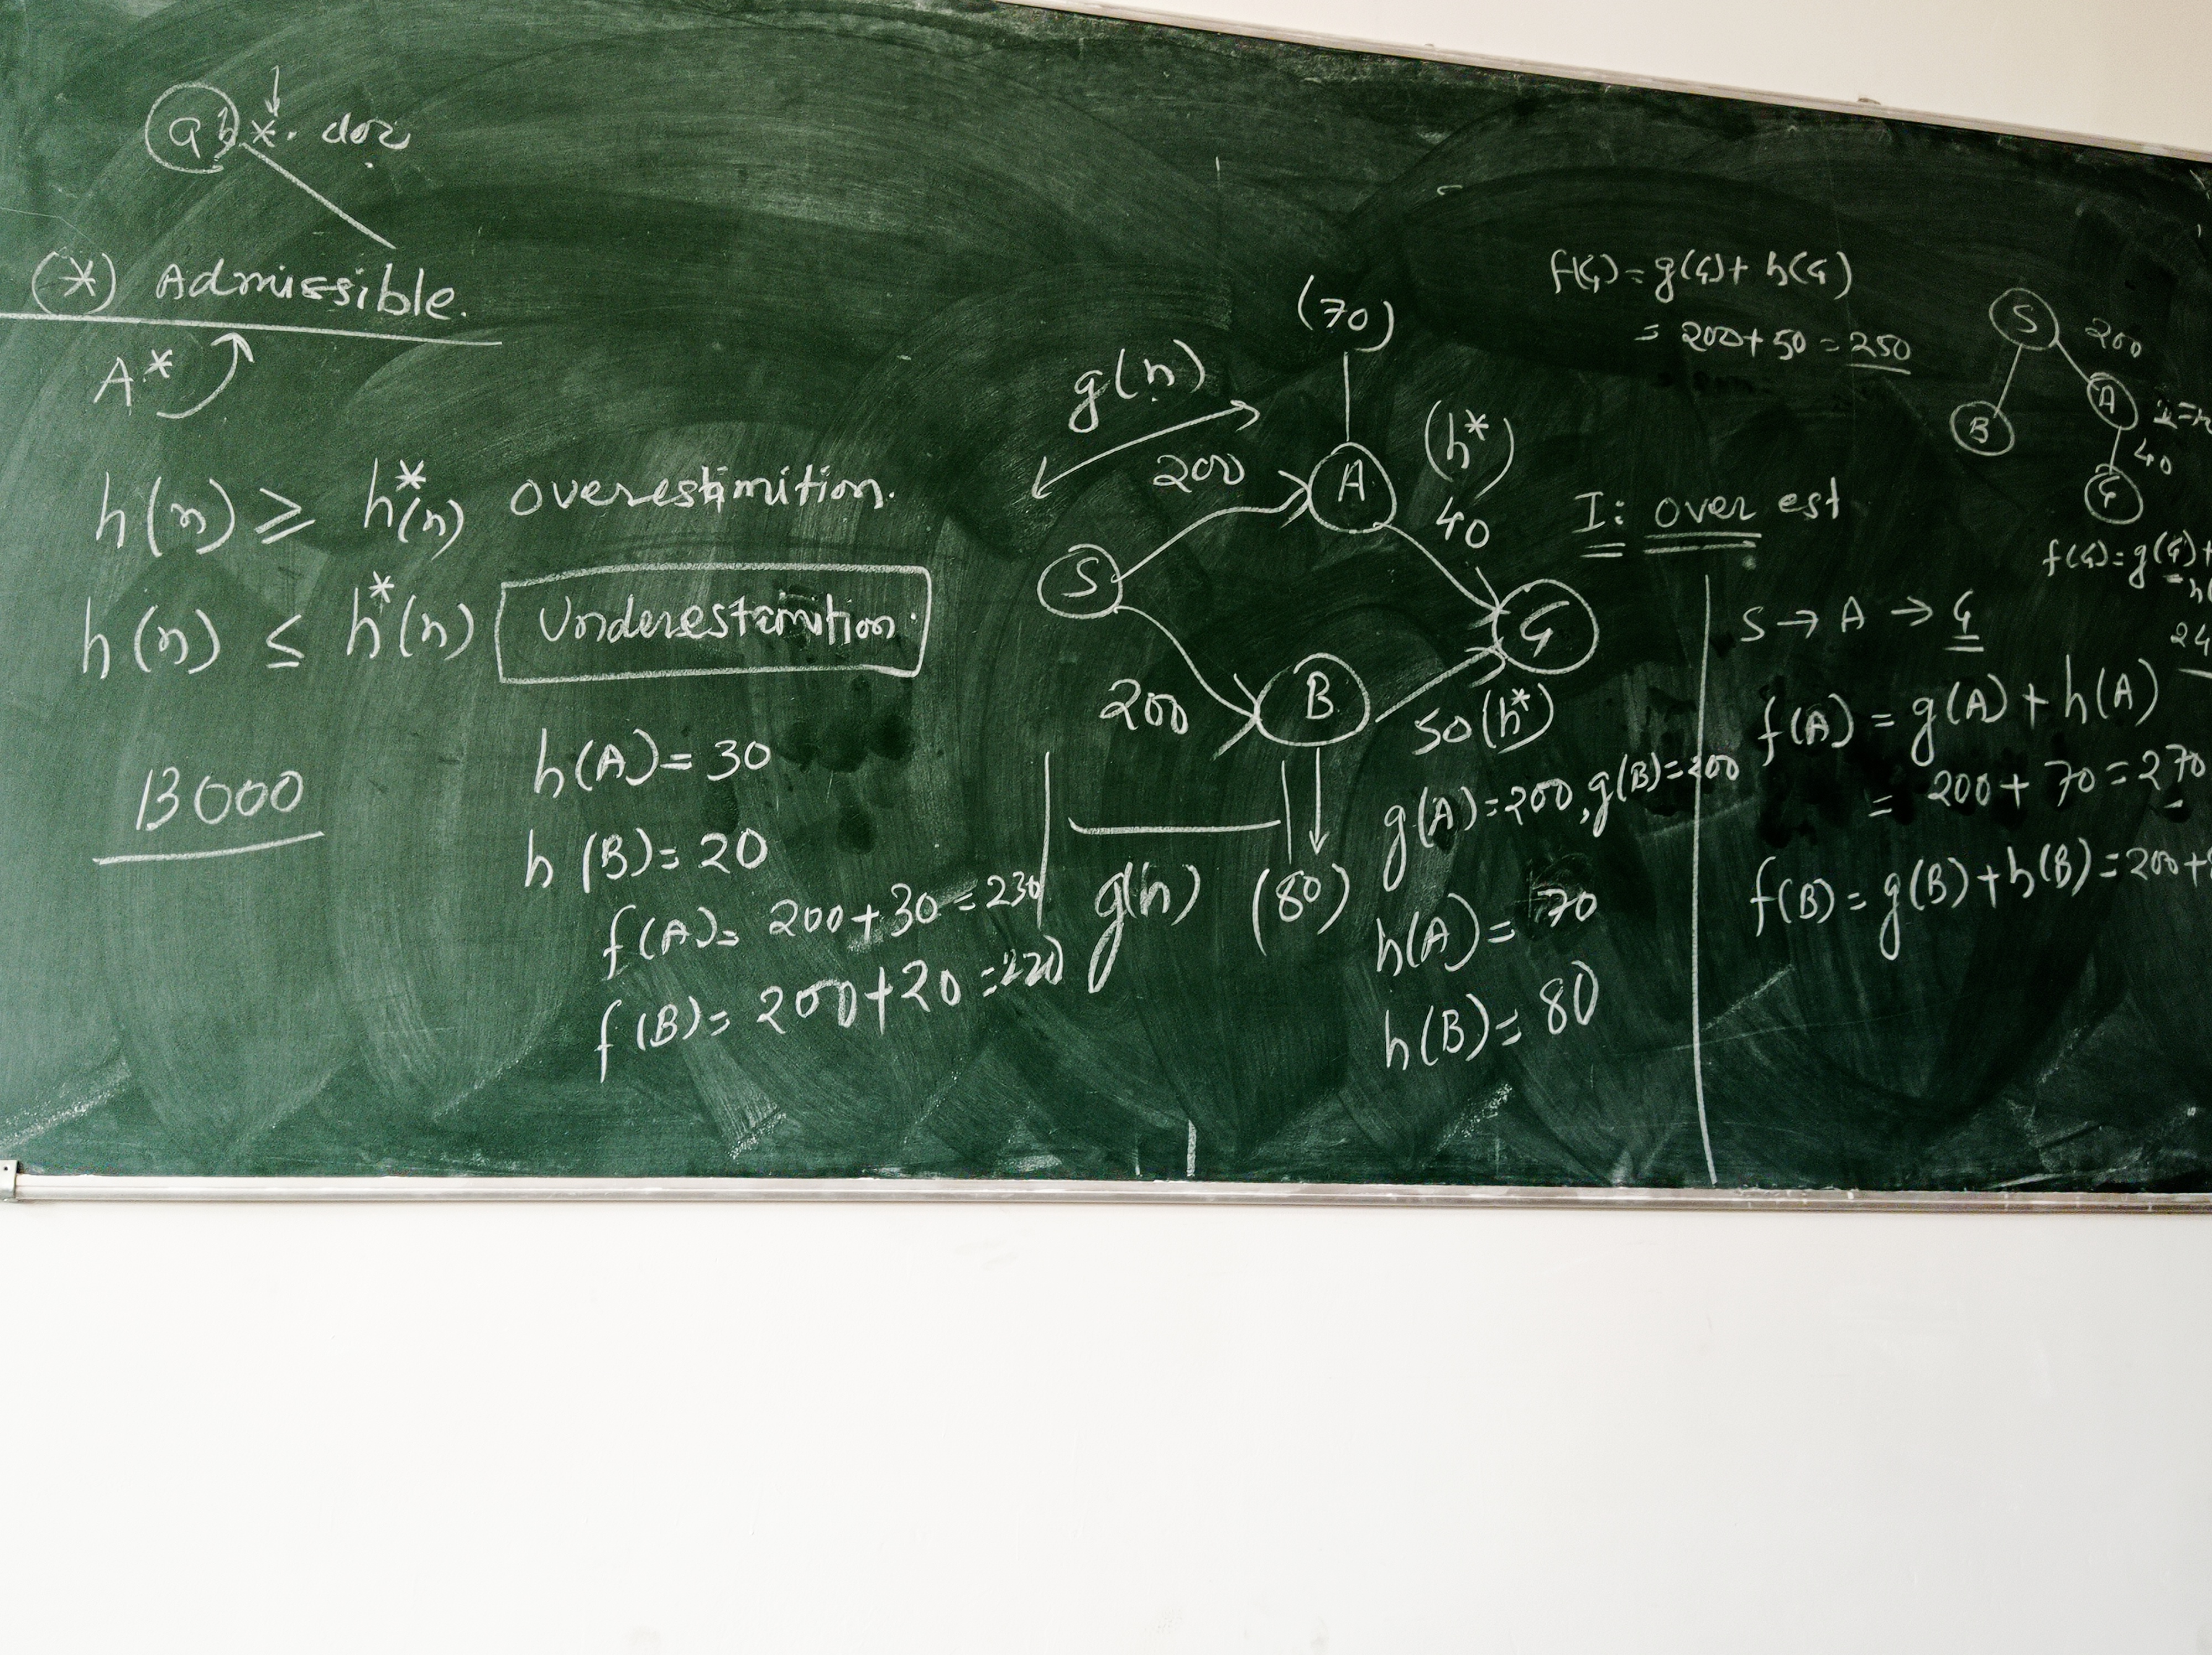 *. doc
(*) Admissible.
A*
h(n) ≥ h*(n) overestimition.
h(n) ≤ h*(n) Underestimation.
13000
h(A)= 30
h(B)= 20
f(A)= 200+30=230
f(B)= 200+20=220
(70)
g(n)
200
A
(h*)
40
S
G
200
B
50(h*)
g(n)
(80)
g(A)=200, g(B)=200
h(A)= 70
h(B)= 80
f(G)=g(G)+h(G)
= 200+50=250
I: over est
S → A → G
f(A) = g(A)+h(A)
= 200+70=270
f(B)= g(B)+h(B)=200+
S
200
A
B
40
G
f(G)=g(G)+
24